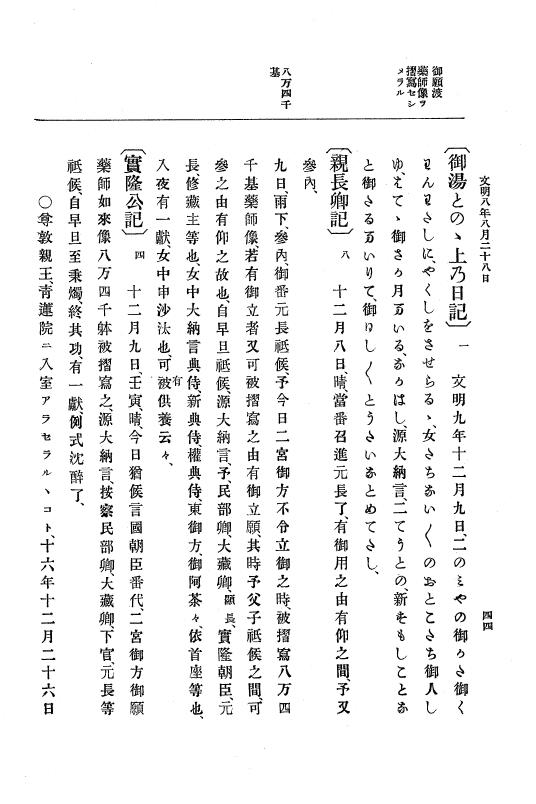 文明八年八月二十八日
四四
御願波
藥師像ヲ
摺寫セシ
メラル
八万四千
基
〔御湯とのゝ上乃日記〕 一 文明九年十二月九日、二のミやの御うさ御く
ゆ、えてゝ御さゝ月まいる、あうはし、源大納言、二てうとの、新せもしことあ
と御さるまいりて、御けし〳〵とうさいあとめてさし、
〔親長卿記〕 八 十二月八日、晴、當番召進元長了、有御用之由有仰之間、予又
參內、
九日、雨下、參內、御番元長祗候、予今日二宮御方不令立御之時、被摺寫八万四
千基藥師像、若有御立者又可被摺寫之由有御立願、其時予父子祗候之間、可
參之由有仰之故也、自早旦祗候、源大納言、予、民部卿、大藏卿、顯長、實隆朝臣、元
長、修藏主等也、女中大納言典侍、新典侍、權典侍、東御方、御阿茶々、依首座等也、
入夜有一獻、女中申沙汰也、可被有供養云々、
〔實隆公記〕 四 十二月九日、壬寅、晴、今日猶候言國朝臣番代、二宮御方御願
藥師如來像八万四千躰被摺寫之、源大納言、按察、民部卿、大藏卿、下官、元長等
祗候、自早旦至秉燭終其功、有一獻、例式沈醉了、
〇尊敦親王、靑蓮院ニ入室アラセラルヽコト、十六年十二月二十六日